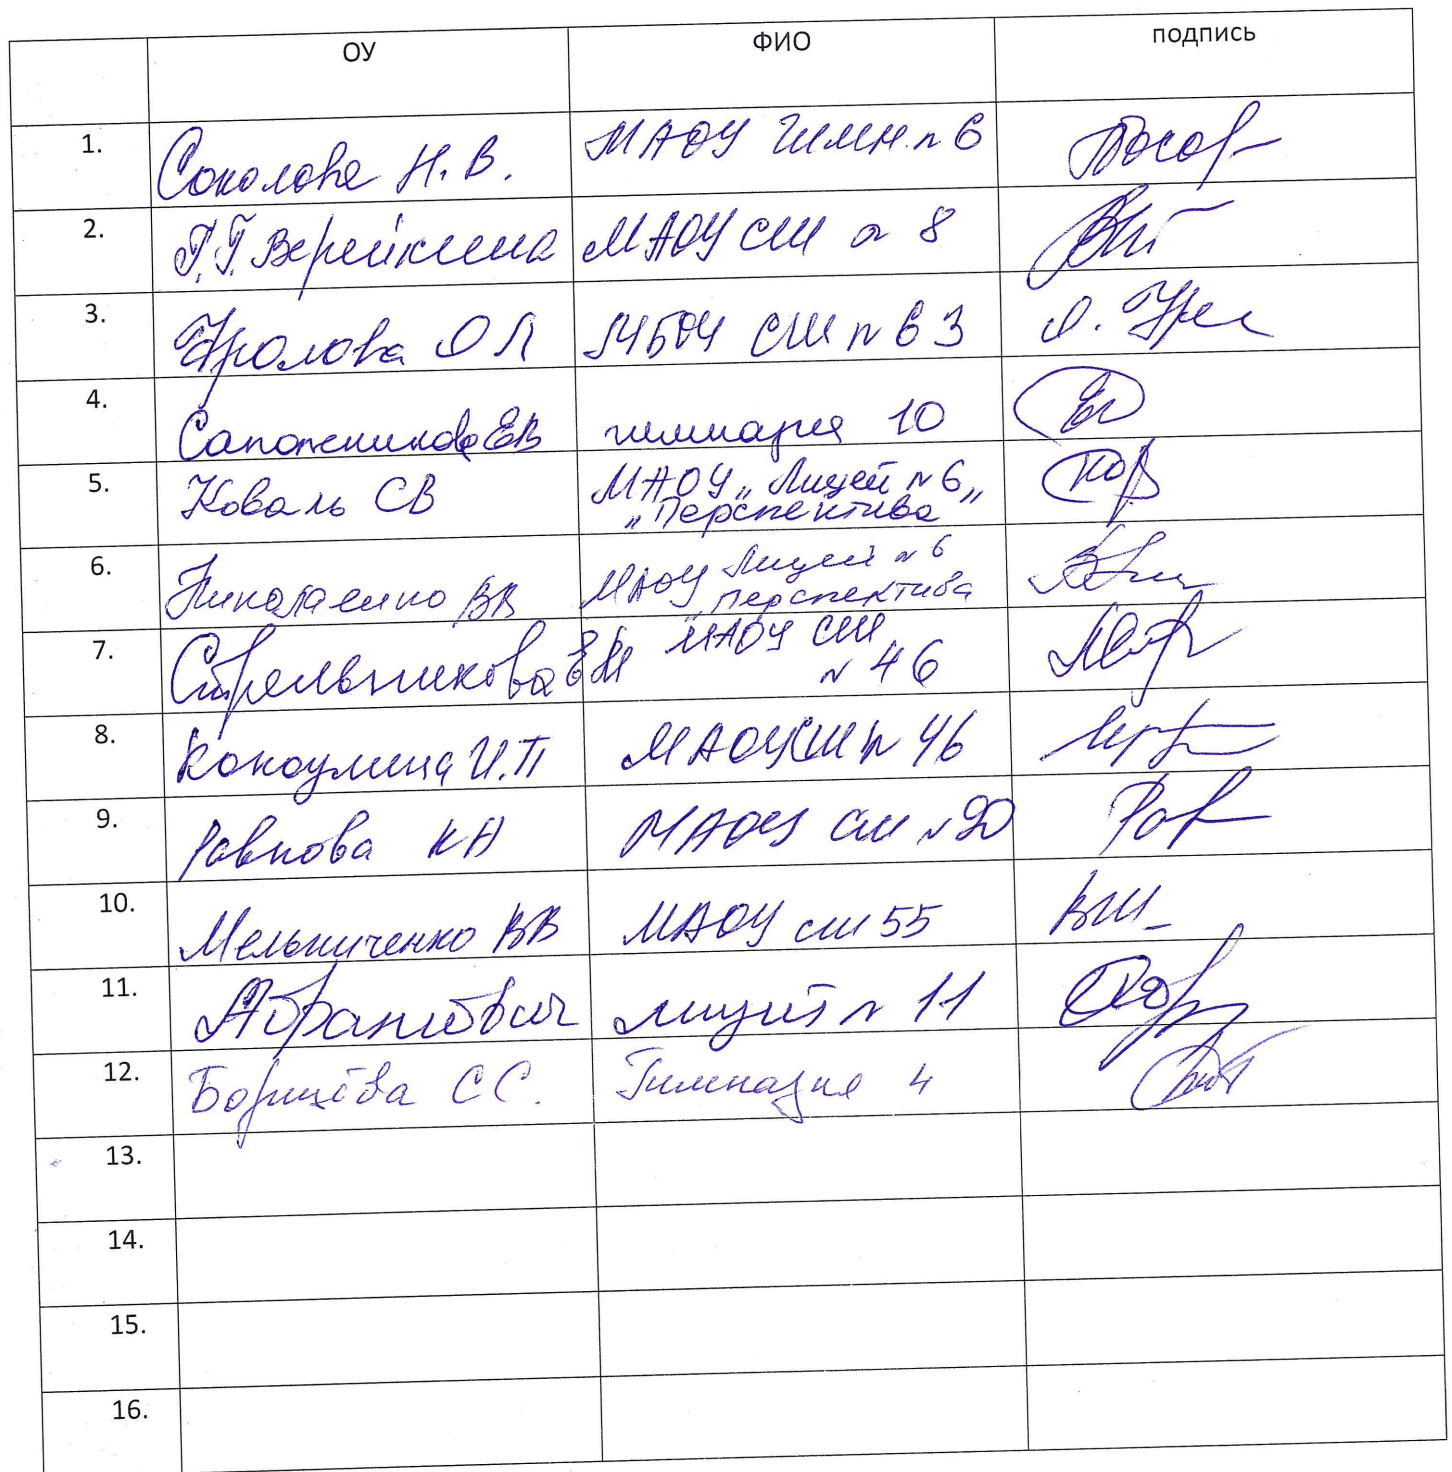 ОУ ФИО подпись
1. Соколова Н. В. МАОУ гимн. № 6
2. Г.Г. Верейкина МАОУ СШ № 8
3. Фролова О Л МБОУ СШ № 63
4. Сапожникова ЕВ гимназия 10
5. Коваль СВ МАОУ „Лицей № 6„
„Перспектива"
6. Николаенко ВВ МАОУ Лицей № 6
„Перспектива
7. Стрельникова ЕМ МАОУ СШ
№ 46
8. Коноулина И.П МАОУ СШ № 46
9. КА МАОУ СШ № 20
10. Мельниченко ВВ МАОУ СШ 55
11. Абрамович лицей № 11
12. Борщёва С С. Гимназия 4
13.
14.
15.
16.